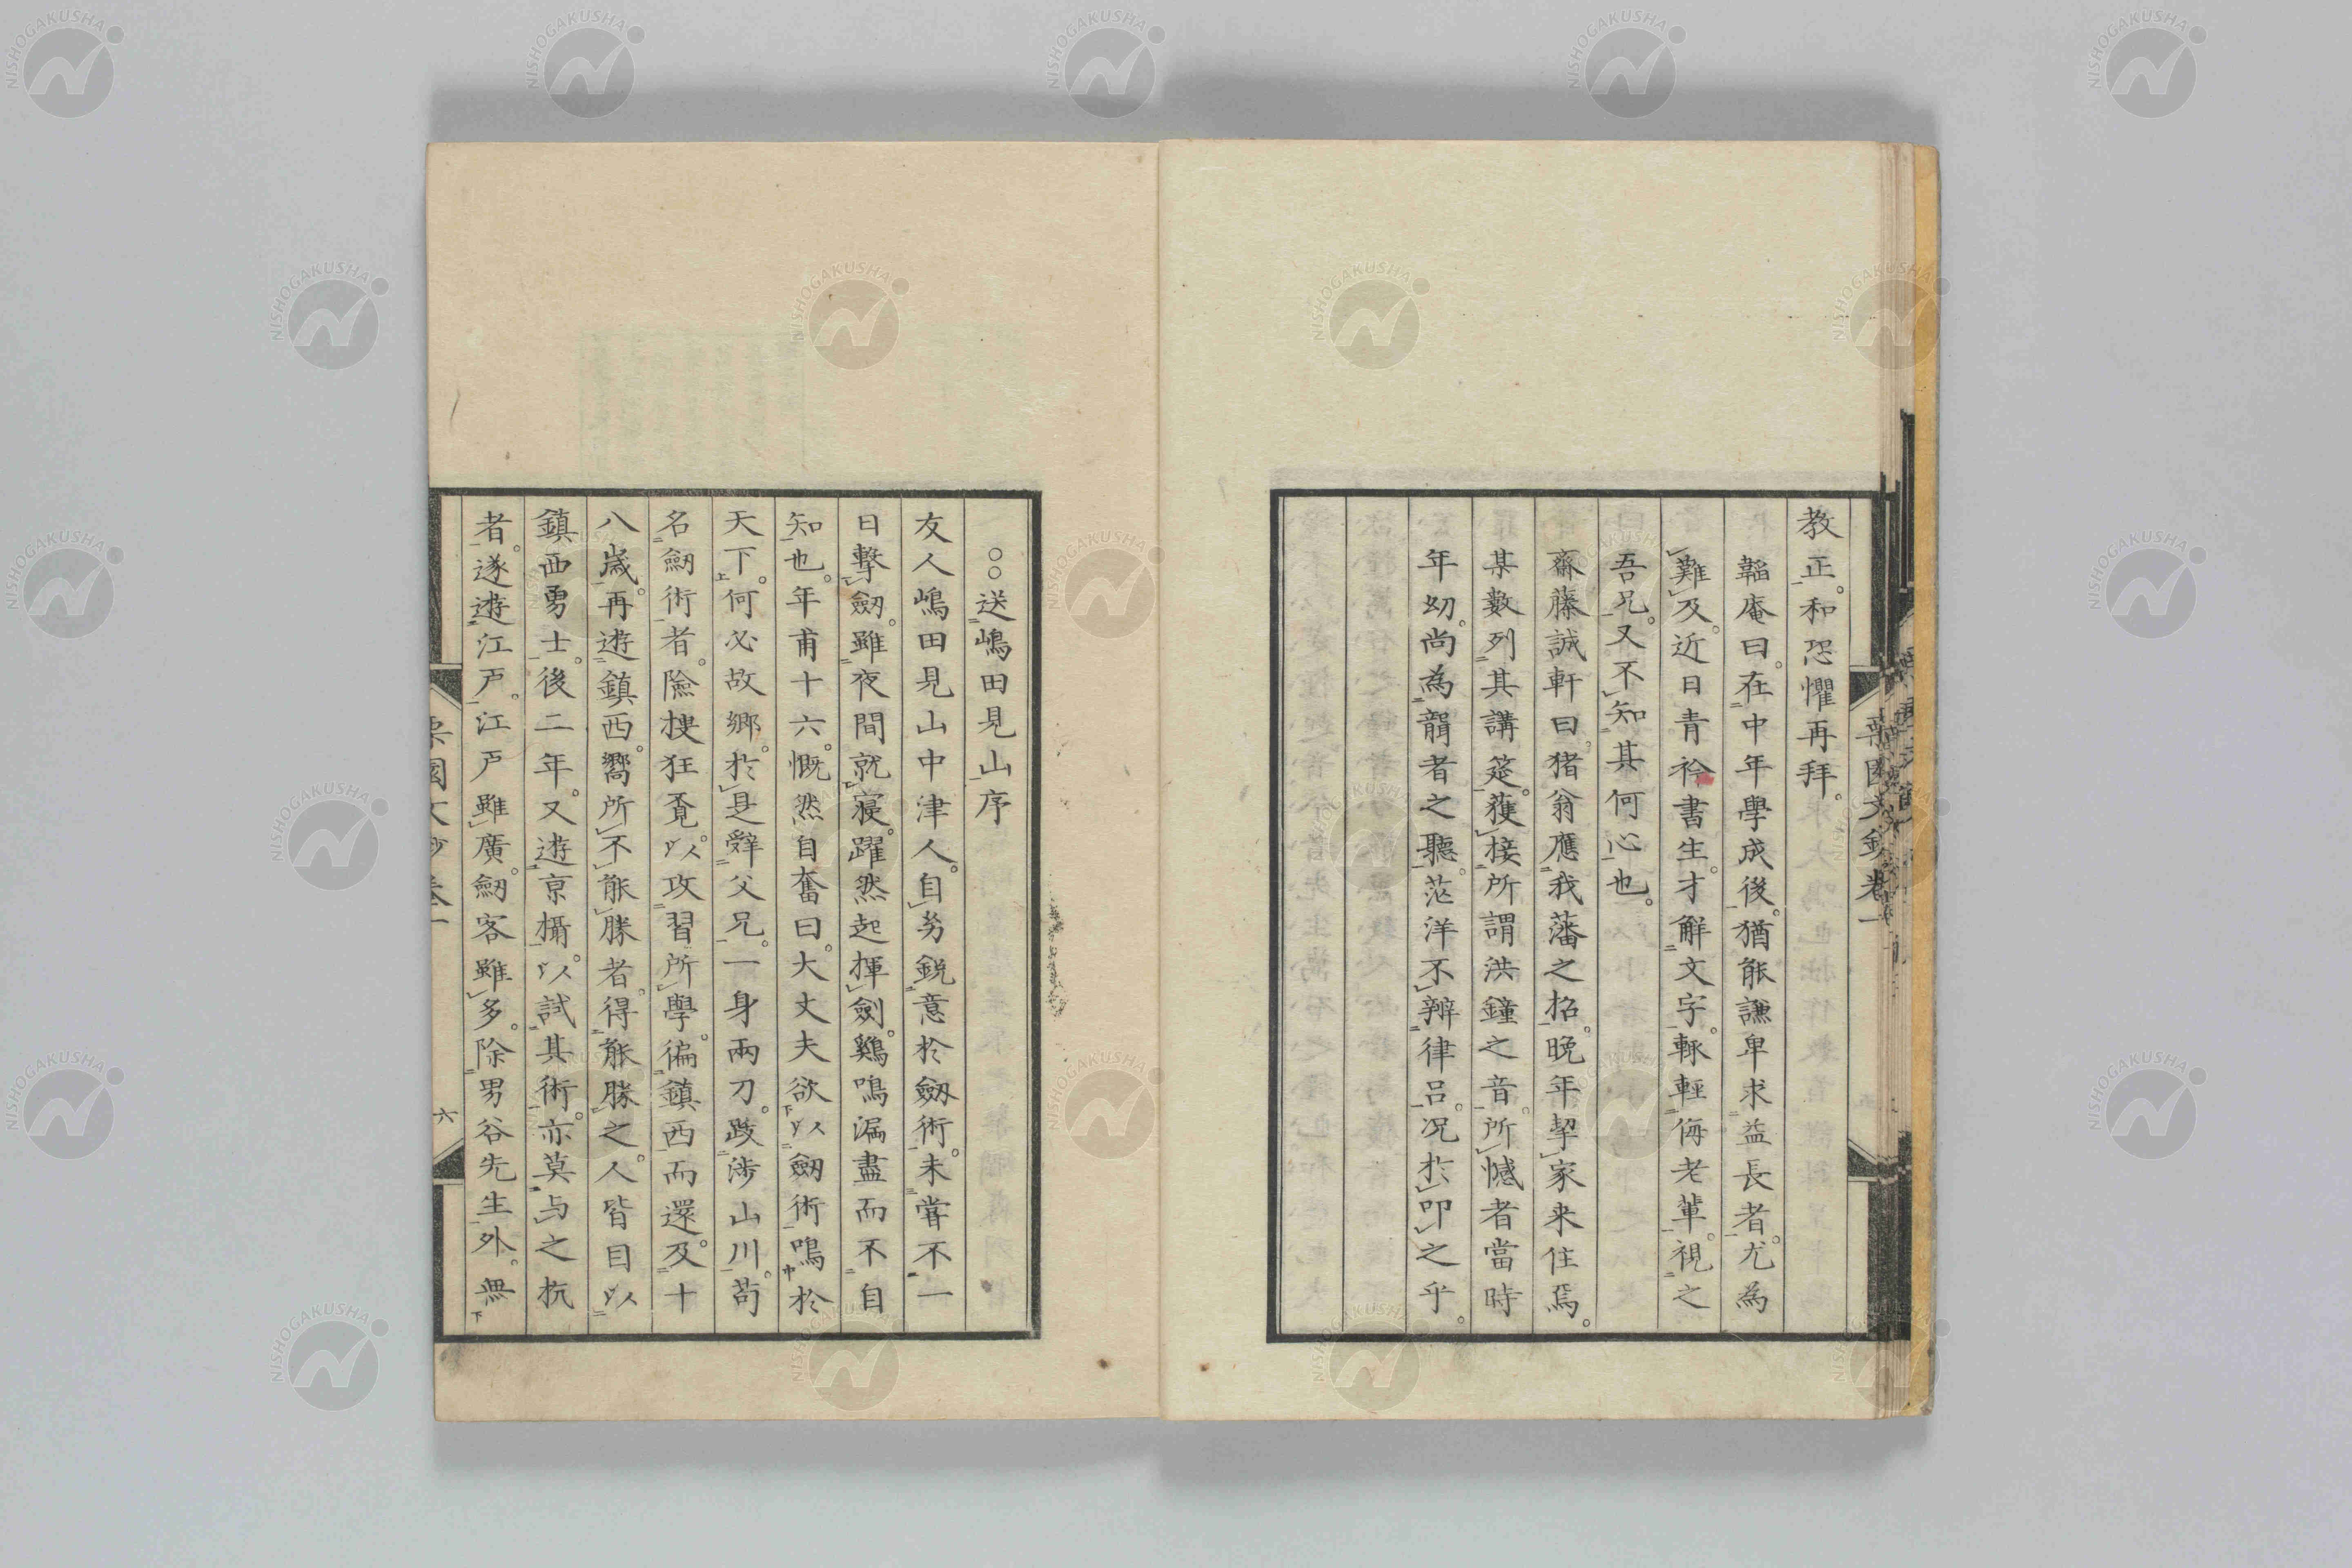 教正。和恐懼再拜。
韜庵曰。在中年學成後。猶能謙卑求益長者。尤為
難及。近日青衿書生。才解文字。輙輕侮老輩。視之
吾兄。又不知其何心也。
齋藤誠軒曰。猪翁應我藩之招。晩年挈家来住焉。
某數列其講筵。獲接所謂洪鐘之音。所憾者當時
年幼。尚為聾者之聽。茫洋不辨律呂。况於叩之乎。
○○送嶋田見山序
友人嶋田見山中津人。自勞鋭意於劔術。未甞不一
日擊劔。雖夜間就寝。躍然起揮劔。鷄鳴漏盡而不自
知也。年甫十六。慨然自奮曰。大丈夫欲以劔術鳴於
天下。何必故郷。於是辭父兄。一身兩刀。跋渉山川。苟
名劔術者。險捜狂覔。以攻習所學。徧鎮西而還。及十
八歳。再遊鎮西。嚮所不能勝者。得能勝之。人皆目以
鎮西勇士。後二年。又遊京攝。以試其術。亦莫与之抗
者。遂遊江戸。江戸雖廣。劔客雖多。除男谷先生外。無
六
NISHOGAKUSHA